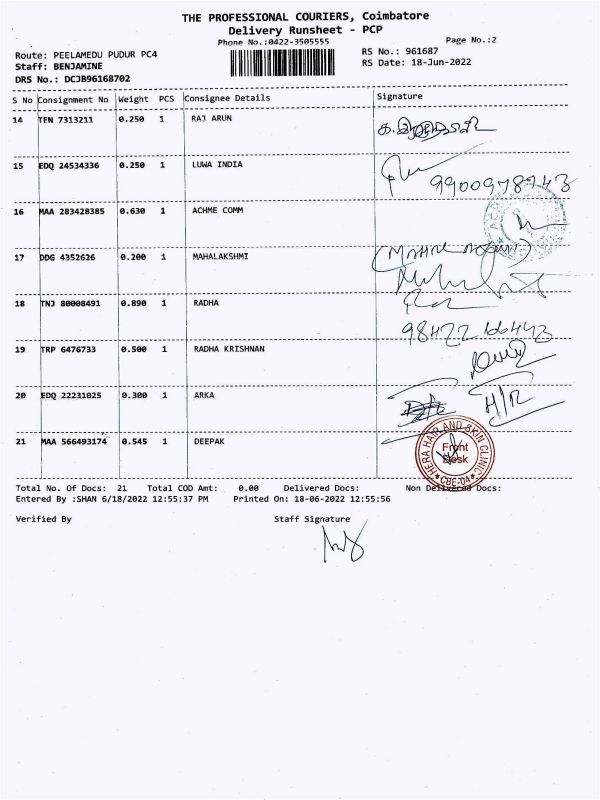 THE PROFESSIONAL COURIERS, Coimbatore
Delivery Runsheet - PCP
Phone No.:0422-3505555
Page No.:2
Route: PEELAMEDU PUDUR PC4
RS No.: 961687
Staff: BENJAMINE
RS Date: 18-Jun-2022
DRS No.: DCJB96168702
S No Consignment No Weight PCS Consignee Details Signature
14 TEN 7313211 0.250 1 RAJ ARUN
15 EDQ 24534336 0.250 1 LUWA INDIA
9900978943
16 MAA 283428385 0.630 1 ACHME COMM
17 DDG 4352626 0.200 1 MAHALAKSHMI
18 TNJ 80008491 0.890 1 RADHA
98422 66443
19 TRP 6476733 0.500 1 RADHA KRISHNAN
20 EDQ 22231025 0.300 1 ARKA
H/R
21 MAA 566493174 0.545 1 DEEPAK
HERA HAIR AND SKIN CLINIC
Front
Desk
CBE-04
Total No. Of Docs: 21 Total COD Amt: 0.00 Delivered Docs: Non Delivered Docs:
Entered By :SHAN 6/18/2022 12:55:37 PM Printed On: 18-06-2022 12:55:56
Verified By Staff Signature